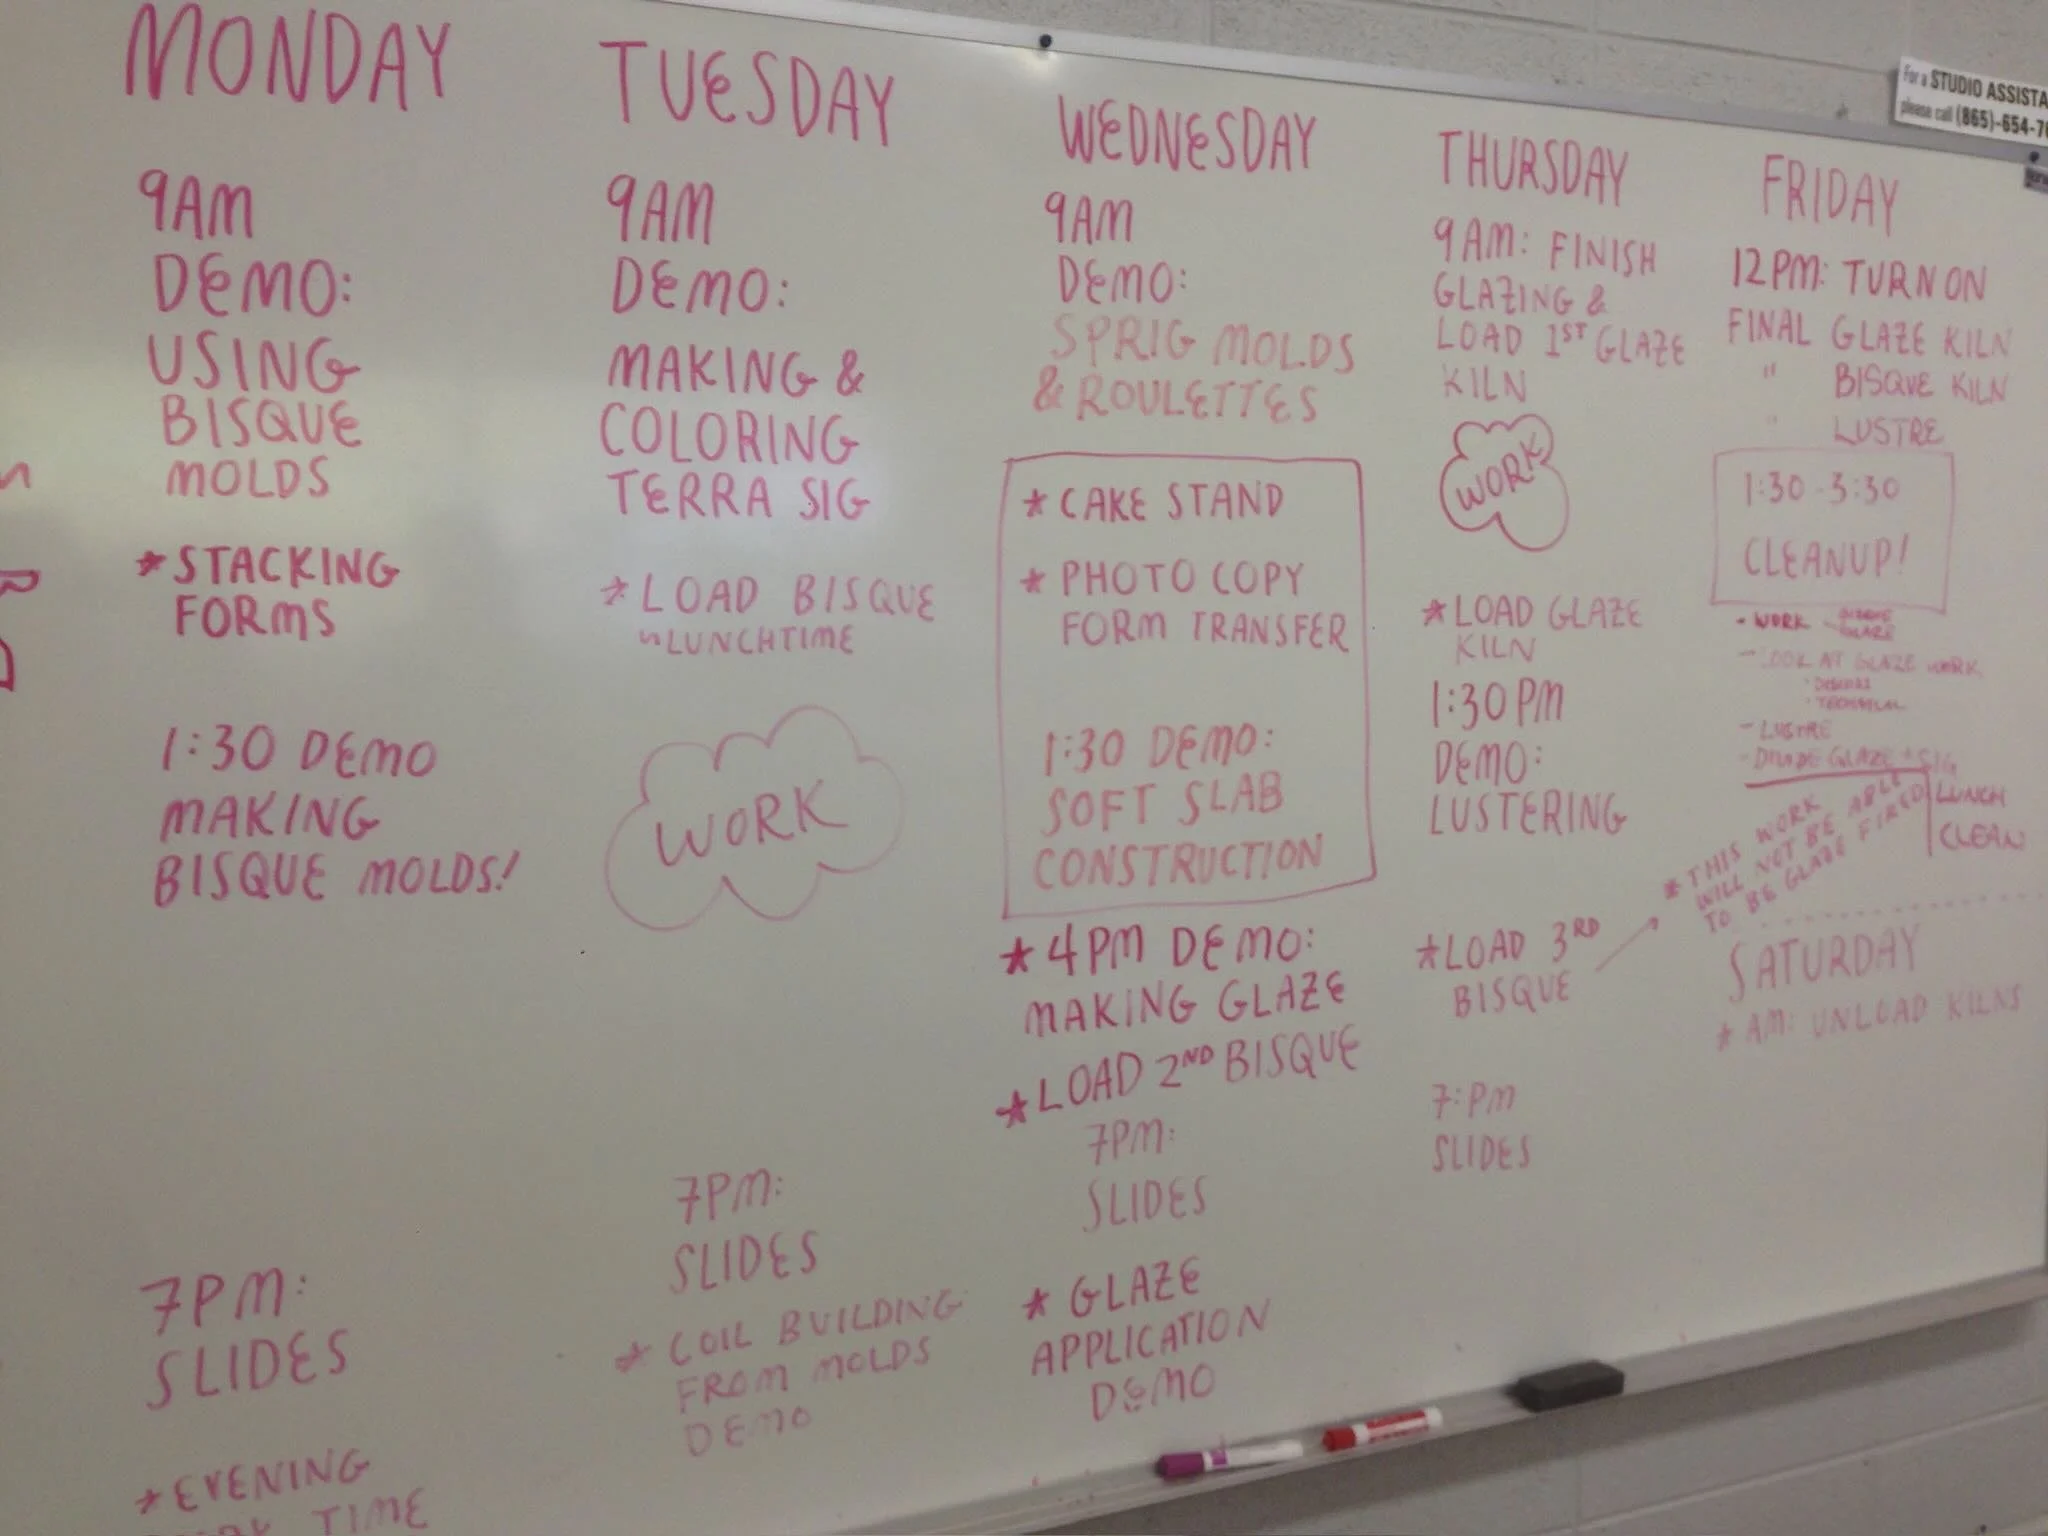 MONDAY
9AM
DEMO:
USING
BISQUE
MOLDS
* STACKING
FORMS
1:30 DEMO
MAKING
BISQUE MOLDS!
7PM:
SLIDES
* EVENING
TIME
TUESDAY
9AM
DEMO:
MAKING &
COLORING
TERRA SIG
* LOAD BISQUE
~LUNCHTIME
WORK
7PM:
SLIDES
* COIL BUILDING
FROM MOLDS
DEMO
WEDNESDAY
9AM
DEMO:
SPRIG MOLDS
& ROULETTES
* CAKE STAND
* PHOTO COPY
FORM TRANSFER
1:30 DEMO:
SOFT SLAB
CONSTRUCTION
* 4PM DEMO:
MAKING GLAZE
* LOAD 2ND BISQUE
7PM:
SLIDES
* GLAZE
APPLICATION
DEMO
THURSDAY
9AM: FINISH
GLAZING &
LOAD 1ST GLAZE
KILN
WORK
* LOAD GLAZE
KILN
1:30 PM
DEMO:
LUSTERING
* LOAD 3RD
BISQUE
7:PM
SLIDES
FRIDAY
12PM: TURN ON
FINAL GLAZE KILN
" BISQUE KILN
" LUSTRE
1:30 - 3:30
CLEANUP!
- WORK
GLAZE
- LOOK AT GLAZE WORK
· TECHNICAL
- LUSTRE
- DIVIDE GLAZE + SIG
LUNCH
CLEAN
* THIS WORK
WILL NOT BE ABLE
TO BE GLAZE FIRED
SATURDAY
* AM: UNLOAD KILNS
For a STUDIO ASSISTA
please call (865)-654-7